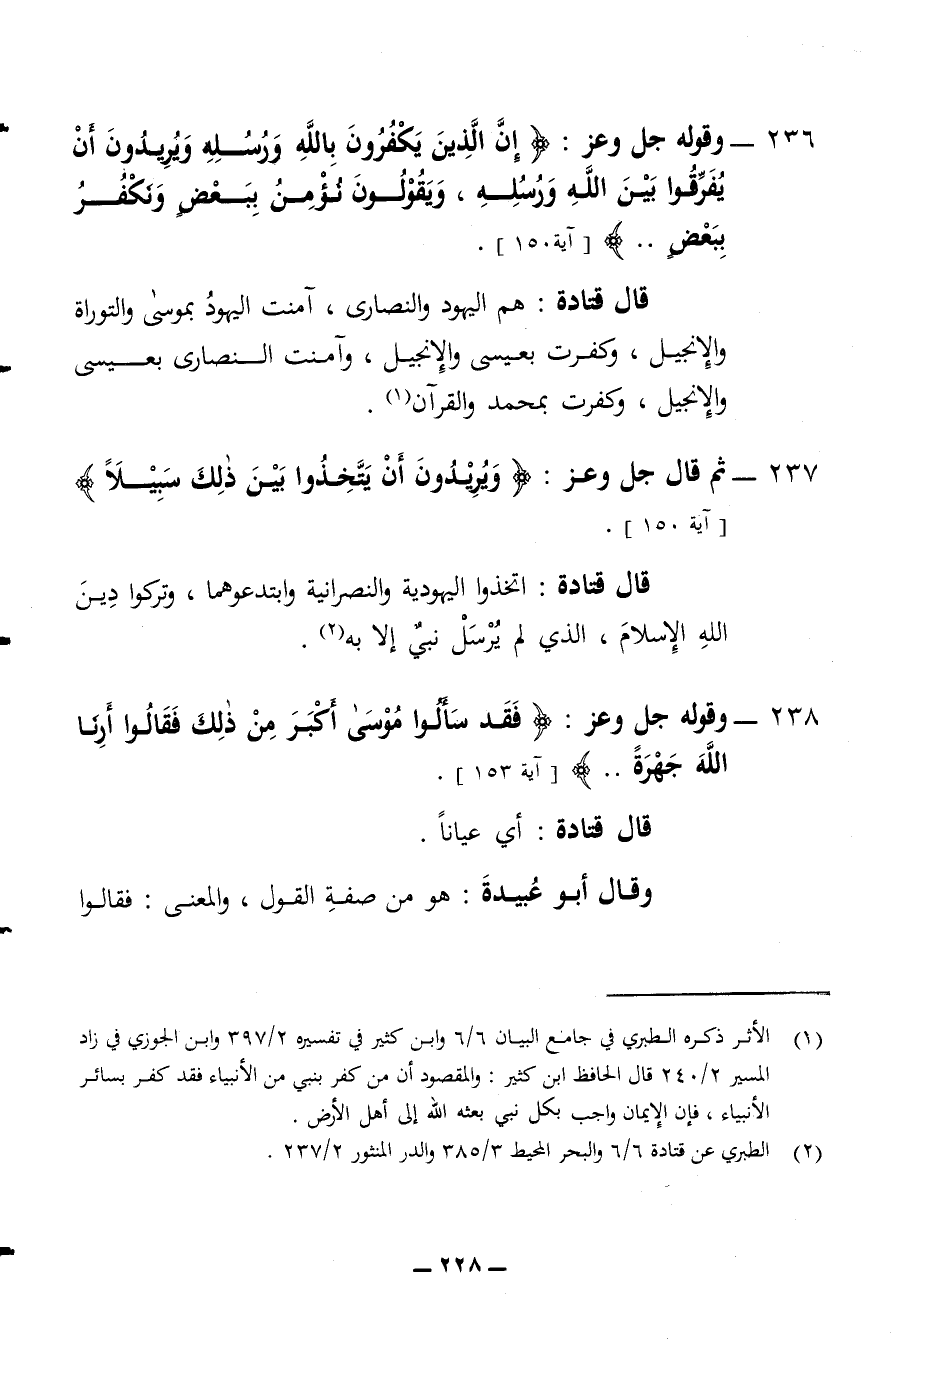 ٢٣٦ ـ وقوله جل وعز : ﴿ إِنَّ الَّذِينَ يَكْفُرُونَ بِاللَّهِ وَرُسُلِهِ وَيُرِيدُونَ أَنْ
يُفَرِّقُوا بَيْنَ اللَّهِ وَرُسُلِهِ ، وَيَقُوْلُونَ نُؤْمِنُ بِبَعْضٍ وَنَكْفُرُ
بِبَعْضٍ .. ﴾ [ آية ١٥٠ ] .
قال قتادة : هم اليهود والنصارى ، آمنت اليهودُ بموسىٰ والتوراة
والإنجيل ، وكفرت بعيسى والإنجيل ، وآمنت النصارى بعيسى
والإنجيل ، وكفرت بمحمد والقرآن(١) .
٢٣٧ ـ ثم قال جل وعز : ﴿ وَيُرِيْدُونَ أَنْ يَتَّخِذُوا بَيْنَ ذٰلِكَ سَبِيْلَاً ﴾
[ آية ١٥٠ ] .
قال قتادة : اتخذوا اليهودية والنصرانية وابتدعوهما ، وتركوا دِينَ
اللهِ الإِسلامَ ، الذي لم يُرْسَلْ نبيٌ إلا به(٢) .
٢٣٨ ـ وقوله جل وعز : ﴿ فَقَد سَأَلُوا مُوْسَىٰ أَكْبَرَ مِنْ ذٰلِكَ فَقَالُوا أَرِنَا
اللَّهَ جَهْرَةً .. ﴾ [ آية ١٥٣ ] .
قال قتادة : أي عياناً .
وقال أبو عُبيدةَ : هو من صفةِ القول ، والمعنى : فقالوا
(١) الأثر ذكره الطبري في جامع البيان ٦/٦ وابن كثير في تفسيره ٣٩٧/٢ وابن الجوزي في زاد
المسير ٢٤٠/٢ قال الحافظ ابن كثير : والمقصود أن من كفر بنبي من الأنبياء فقد كفر بسائر
الأنبياء ، فإن الإيمان واجب بكل نبي بعثه الله إلى أهل الأرض .
(٢) الطبري عن قتادة ٦/٦ والبحر المحيط ٣٨٥/٣ والدر المنثور ٢٣٧/٢ .
ـ ٢٢٨ ـ